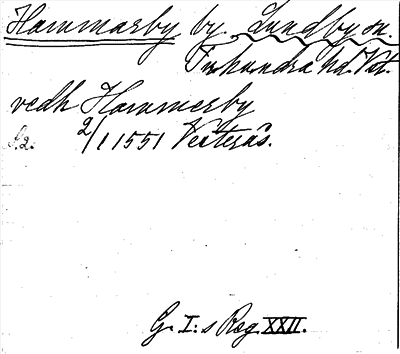 Hammarby by. Lundby sn.
Tuhundra hd. Vst.
vedh Hammerby
S. 2. 2/1 1551 Vesterås.
G. I:s Reg. XXII.